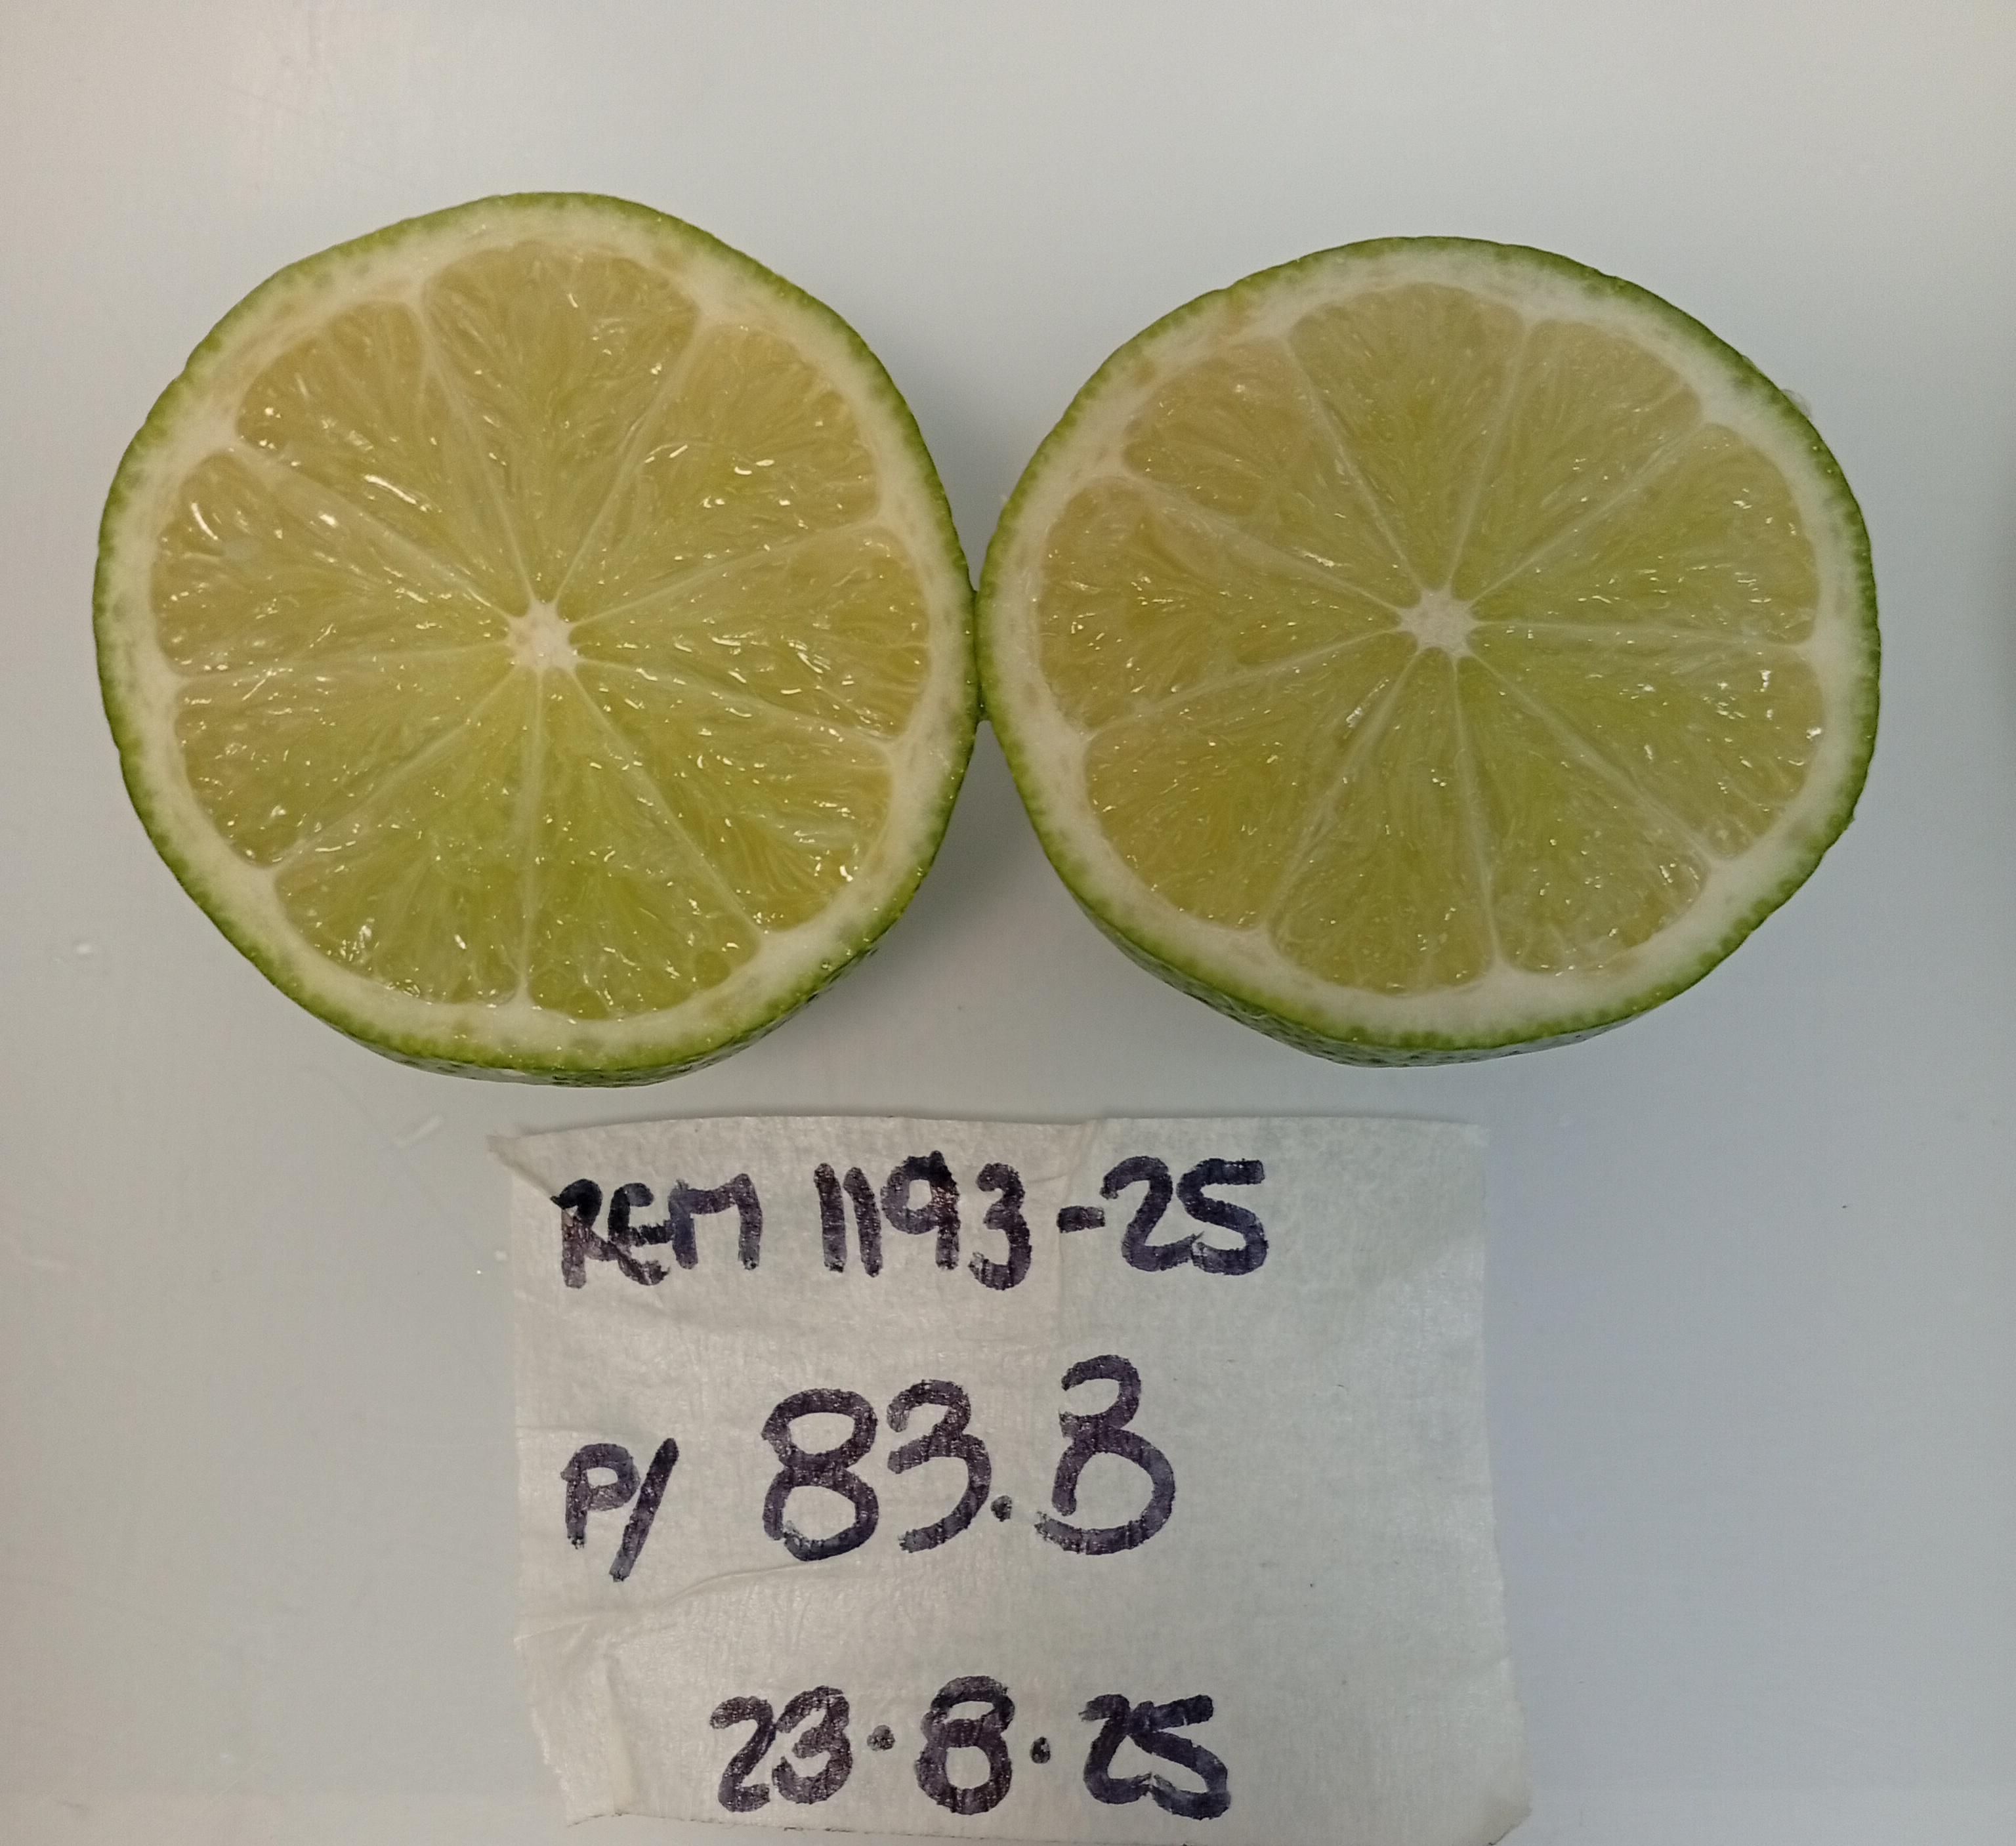 REM 1193-25
P/ 83.3
23.8.25